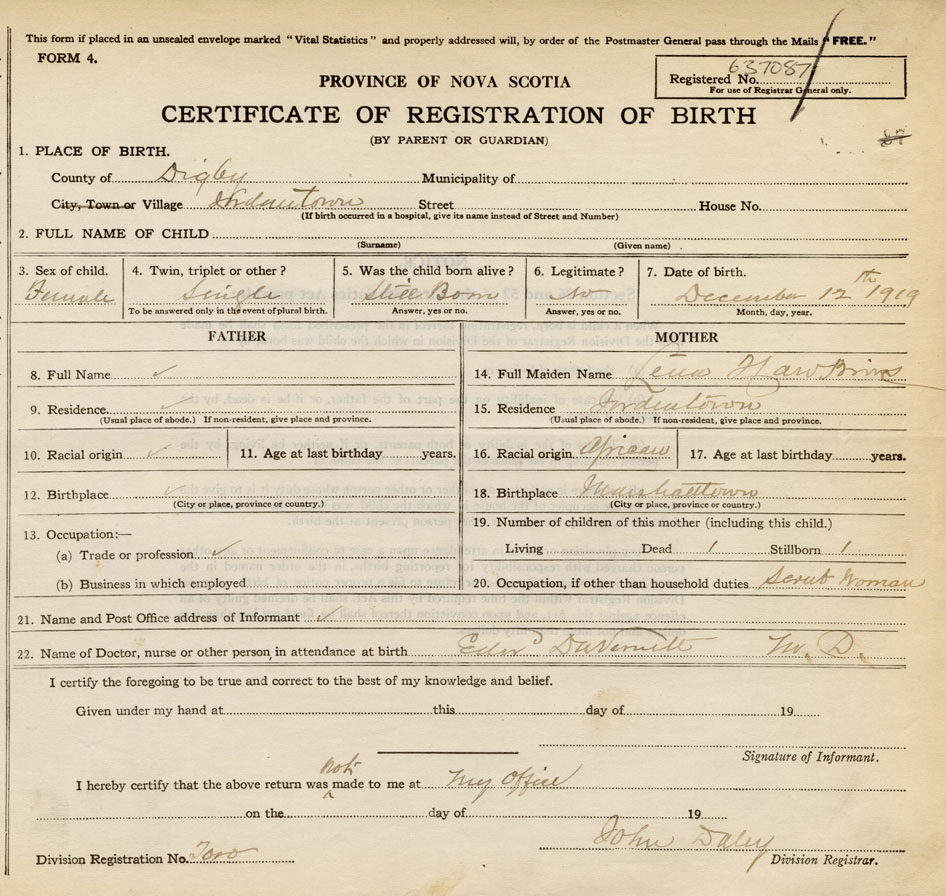 This form if placed in an unsealed envelope marked "Vital Statistics" and properly addressed will, by order of the Postmaster General pass through the Mails "FREE."
FORM 4.
PROVINCE OF NOVA SCOTIA
Registered No. 637087
For use of Registrar General only.
CERTIFICATE OF REGISTRATION OF BIRTH
(BY PARENT OR GUARDIAN)
87
1. PLACE OF BIRTH.
County of Digby Municipality of
City, Town or Village Jordantown Street House No.
(If birth occurred in a hospital, give its name instead of Street and Number)
2. FULL NAME OF CHILD
(Surname) (Given name)
3. Sex of child. 4. Twin, triplet or other? 5. Was the child born alive? 6. Legitimate? 7. Date of birth.
Female Single Still Born No December 12th 1919
To be answered only in the event of plural birth. Answer, yes or no. Answer, yes or no. Month, day, year.
FATHER MOTHER
8. Full Name ✓ 14. Full Maiden Name Lena Hawkins
9. Residence ✓ 15. Residence Jordantown
(Usual place of abode.) If non-resident, give place and province. (Usual place of abode.) If non-resident, give place and province.
10. Racial origin ✓ 11. Age at last birthday years. 16. Racial origin African 17. Age at last birthday years.
12. Birthplace ✓ 18. Birthplace Marshalltown
(City or place, province or country.) (City or place, province or country.)
13. Occupation:— 19. Number of children of this mother (including this child.)
(a) Trade or profession ✓ Living Dead 1 Stillborn 1
(b) Business in which employed 20. Occupation, if other than household duties. Scrub Woman
21. Name and Post Office address of Informant ✓
22. Name of Doctor, nurse or other person, in attendance at birth Edw'd DuVernett M. D.
I certify the foregoing to be true and correct to the best of my knowledge and belief.
Given under my hand at this day of 19
Signature of Informant.
I hereby certify that the above return was not made to me at My Office
on the day of 19
John Daley
Division Registration No. Two Division Registrar.